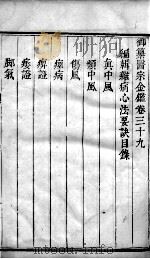 御纂醫宗金鑑卷三十九
編輯雜病心法要訣目錄
真中風
類中風
傷風
痙病
痹證
痿證
脚氣